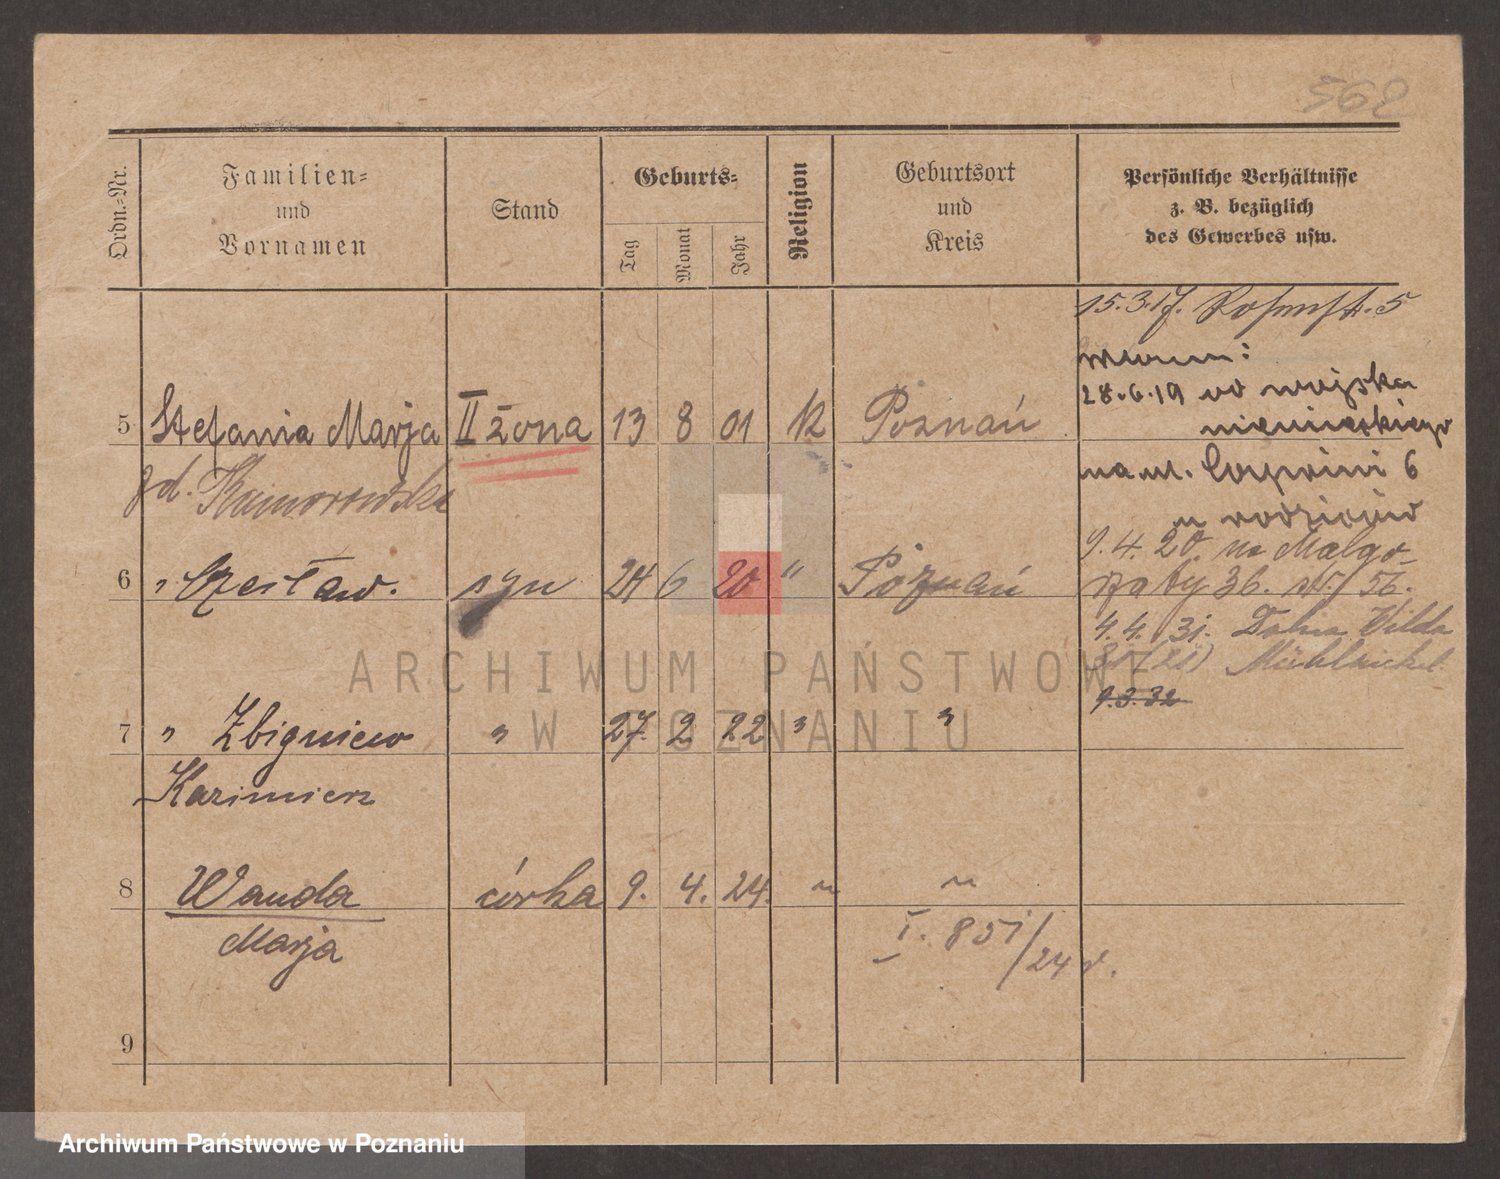 562
Ordn.-Nr.
Familien-
und
Vornamen
Stand
Geburts-
Tag
Monat
Jahr
Religion
Geburtsort
und
Kreis
Persönliche Verhältnisse
z. B. bezüglich
des Gewerbes usw.
15.3.17. Rosenstr. 5
28.6.19 od wojska
niemieckiego
na ul. 6
u rodziców
5 Stefania Marja II żona 13 8 01 K Poznań
zd. Kaimorowska
9.4.20. na Małgo-
rzaty 36. 56.
6 " Czesław. syn 24 6 20 " Poznań
4.4.31. Wilda
9.3.32
7 " Zbigniew " 27. 2 22 " "
Kazimierz
8 Wanda córka 9. 4. 24. " "
Marja
I. 851/24 r.
9
ARCHIWUM PAŃSTWOWE
W POZNANIU
Archiwum Państwowe w Poznaniu